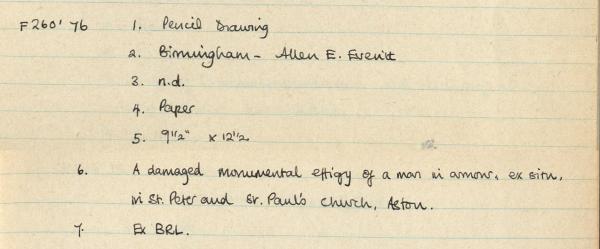 F260' 76 1. Pencil Drawing
2. Birmingham - Allen E. Everitt
3. n.d.
4. Paper
5. 9 1/2" x 12 1/2
6. A damaged monumental effigy of a man in armour, ex situ,
in St. Peter and St. Paul's church, Aston.
7. Ex BRL.